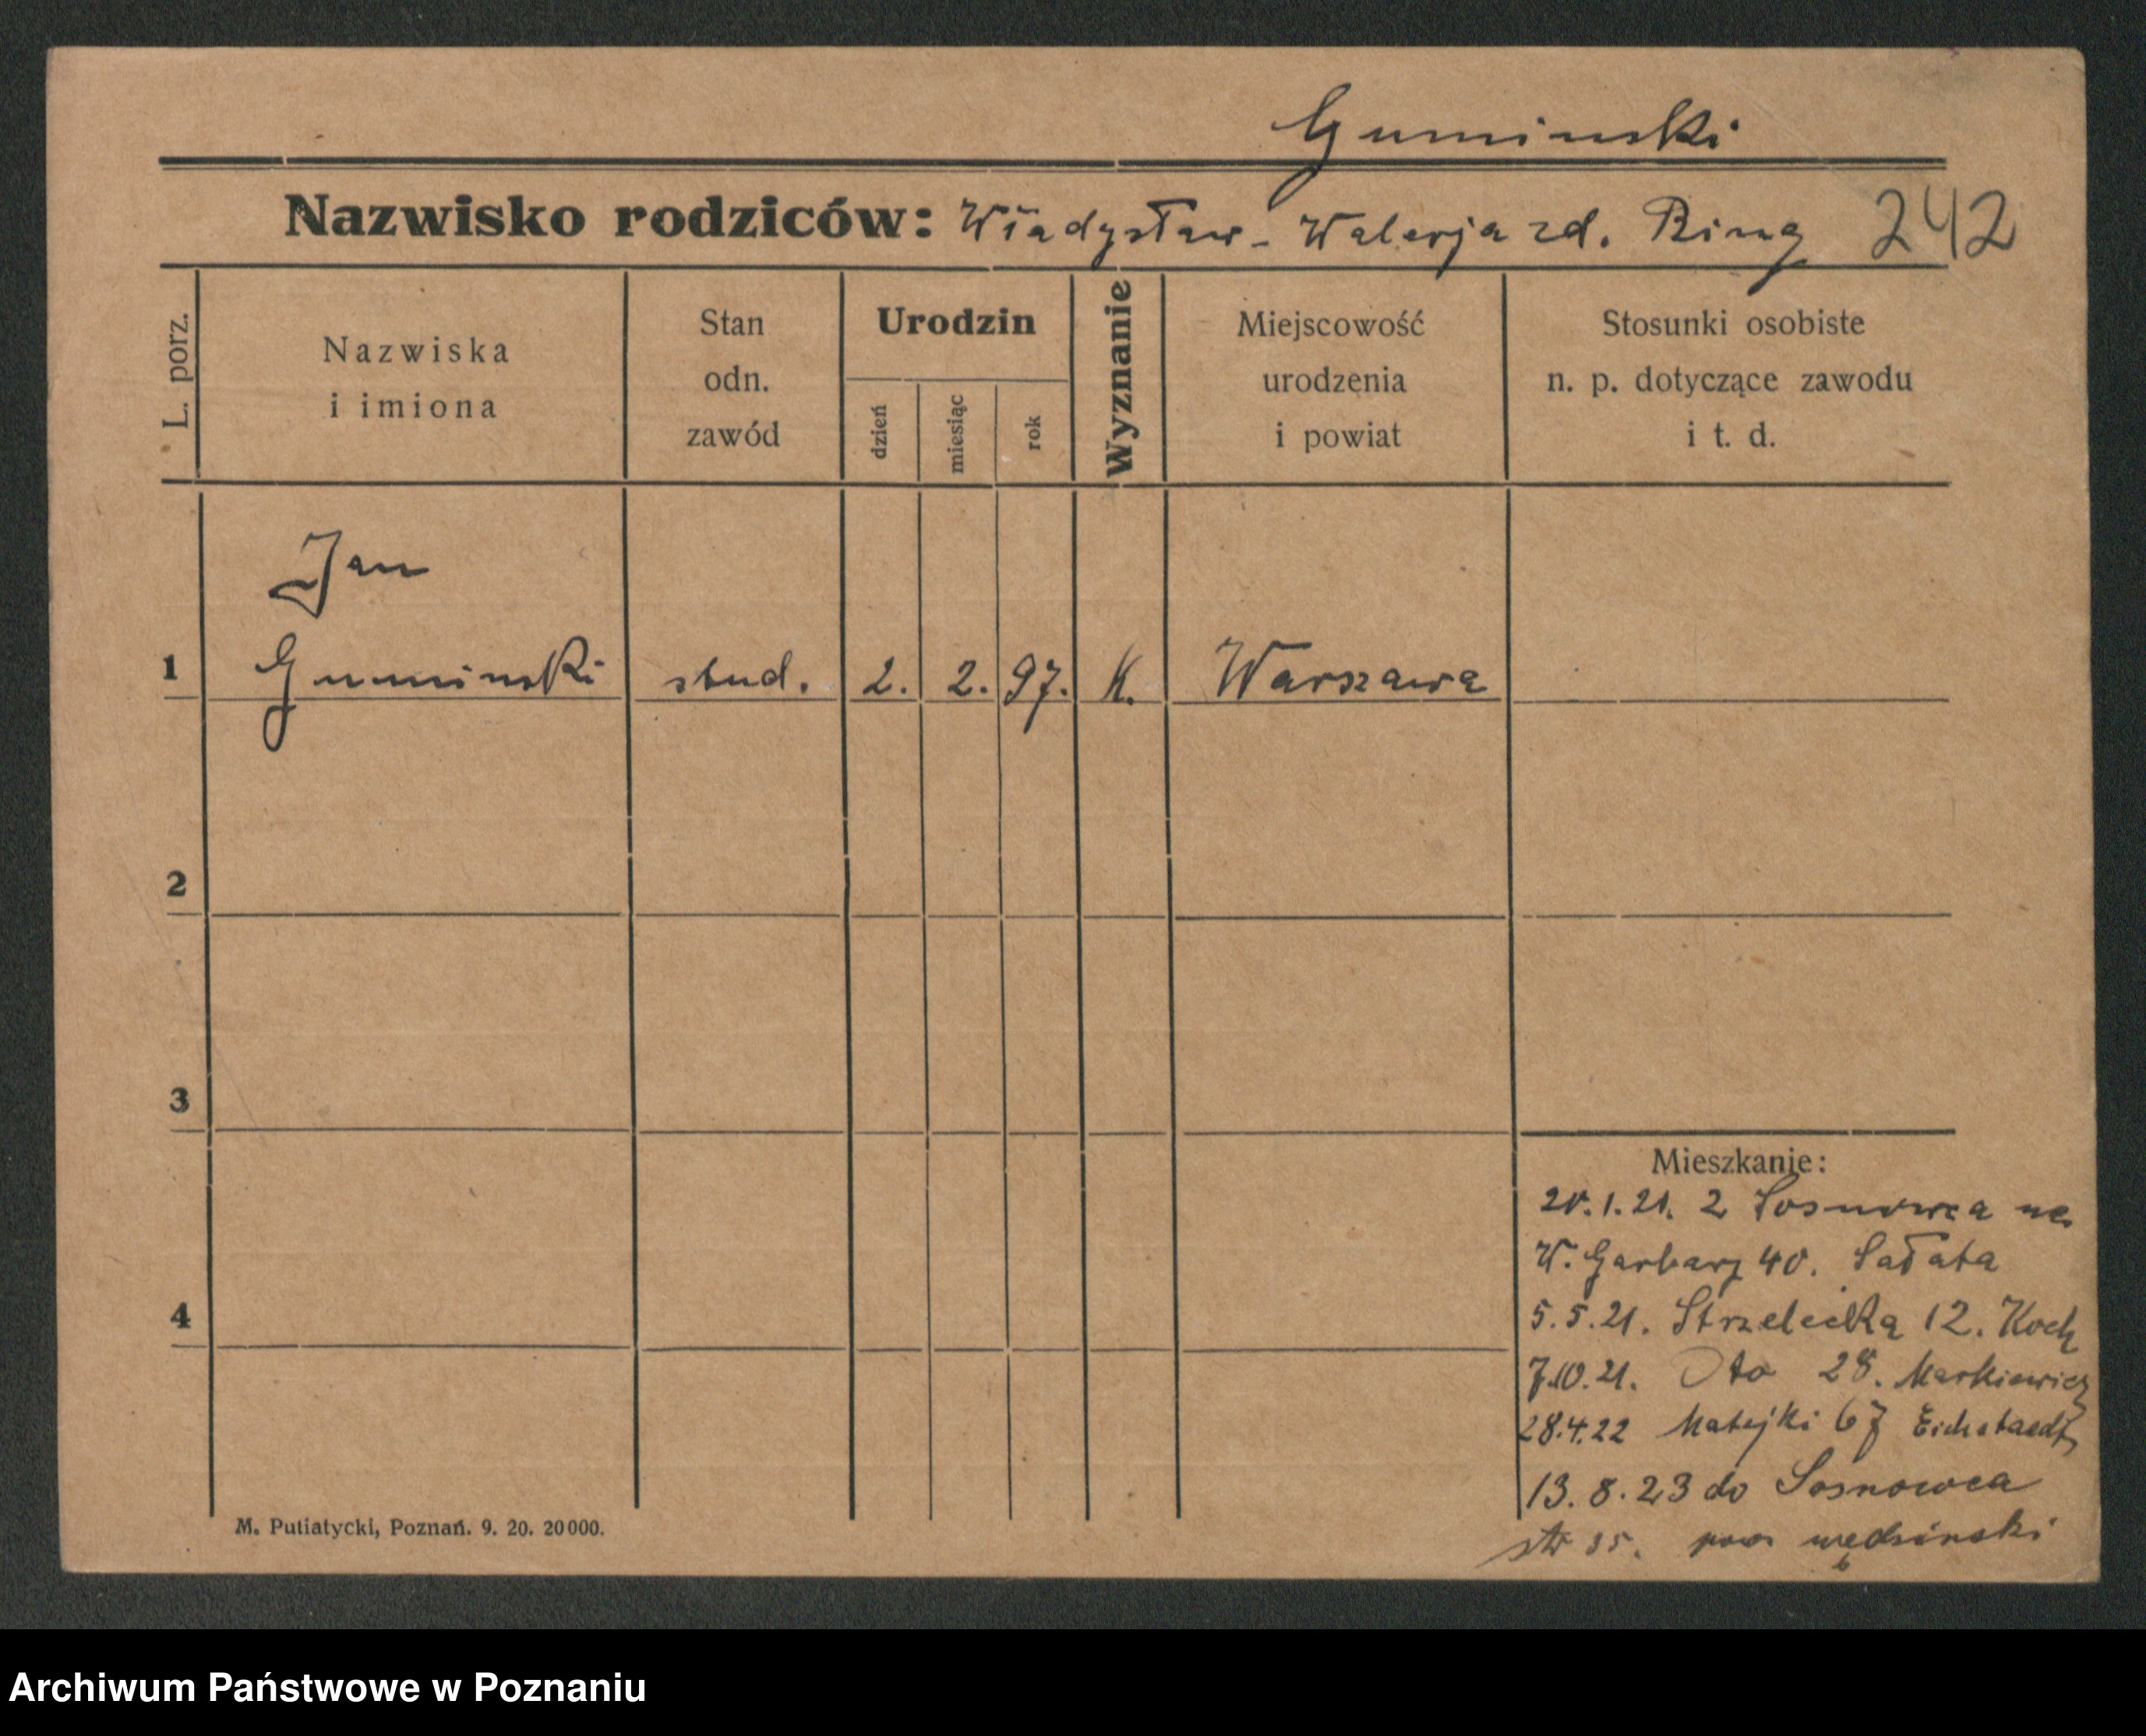 Guminski
Nazwisko rodziców: Władysław - Walerja zd. Ring 242
L. porz.
Nazwiska
i imiona
Stan
odn.
zawód
Urodzin
dzień
miesiąc
rok
Wyznanie
Miejscowość
urodzenia
i powiat
Stosunki osobiste
n. p. dotyczące zawodu
i t. d.
Jan
1 Guminski stud. 2. 2. 97. K. Warszawa
2
3
4
Mieszkanie:
20.1.21. z Sosnowca na
W. Garbary 40. Sałata
5.5.21. Strzelecka 12. Koch
7.10.21. Dto 28. Markiewicz
28.4.22 Matejki 67 Eichstaedt
13.8.23 do Sosnowca
35.
M. Putiatycki, Poznań. 9. 20. 20000.
Archiwum Państwowe w Poznaniu